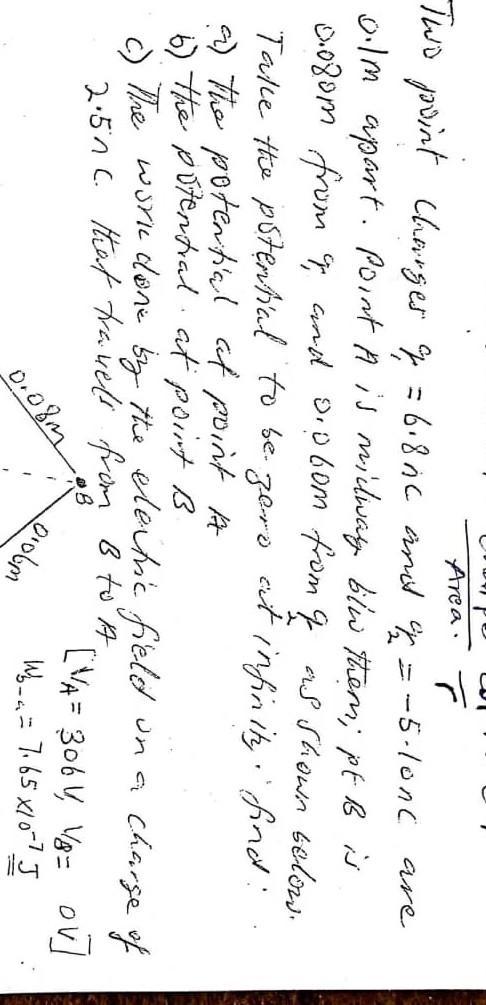 Area. r
Two point charges q₁ = 6.8nC and q₂ = -5.10nC are
0.1m apart. Point A is midway b/w them; pt B is
0.080m from q₁ and 0.060m from q₂ as shown below.
Take the potential to be zero at infinity. find:
a) The potential at point A
b) The potential at point B
c) The work done by the electric field on a charge of
2.5nC that travels from B to A
[VA = 306V, VB = 0V]
Wb-a = 7.65 x10⁻⁷ J
B
0.08m
0.06m